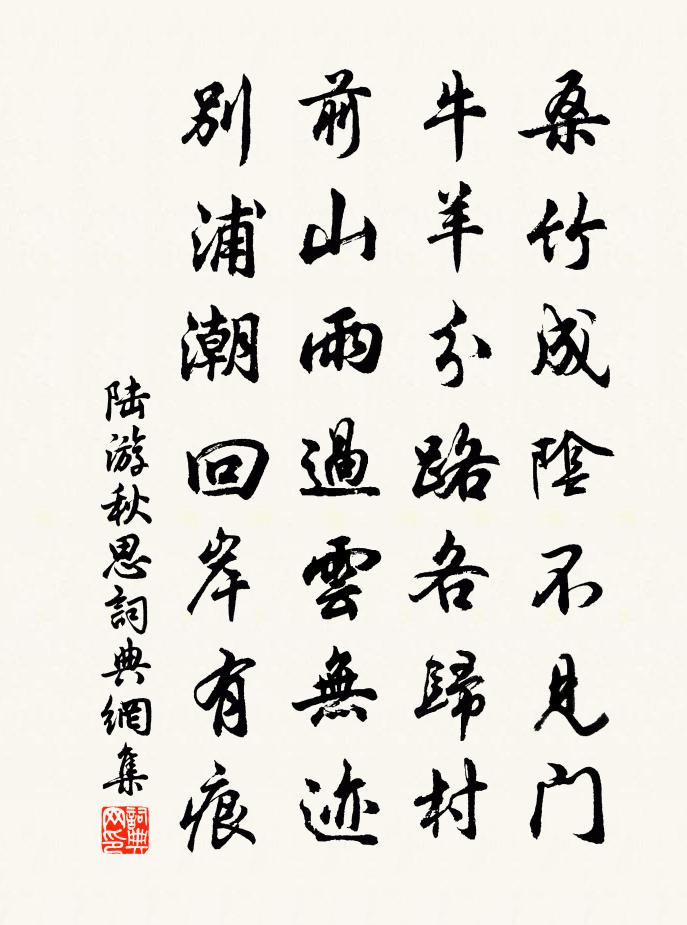 桑竹成陰不見門
牛羊分路各歸村
前山雨過雲無迹
別浦潮回岸有痕
陆游秋思詞典網集
詞典网印